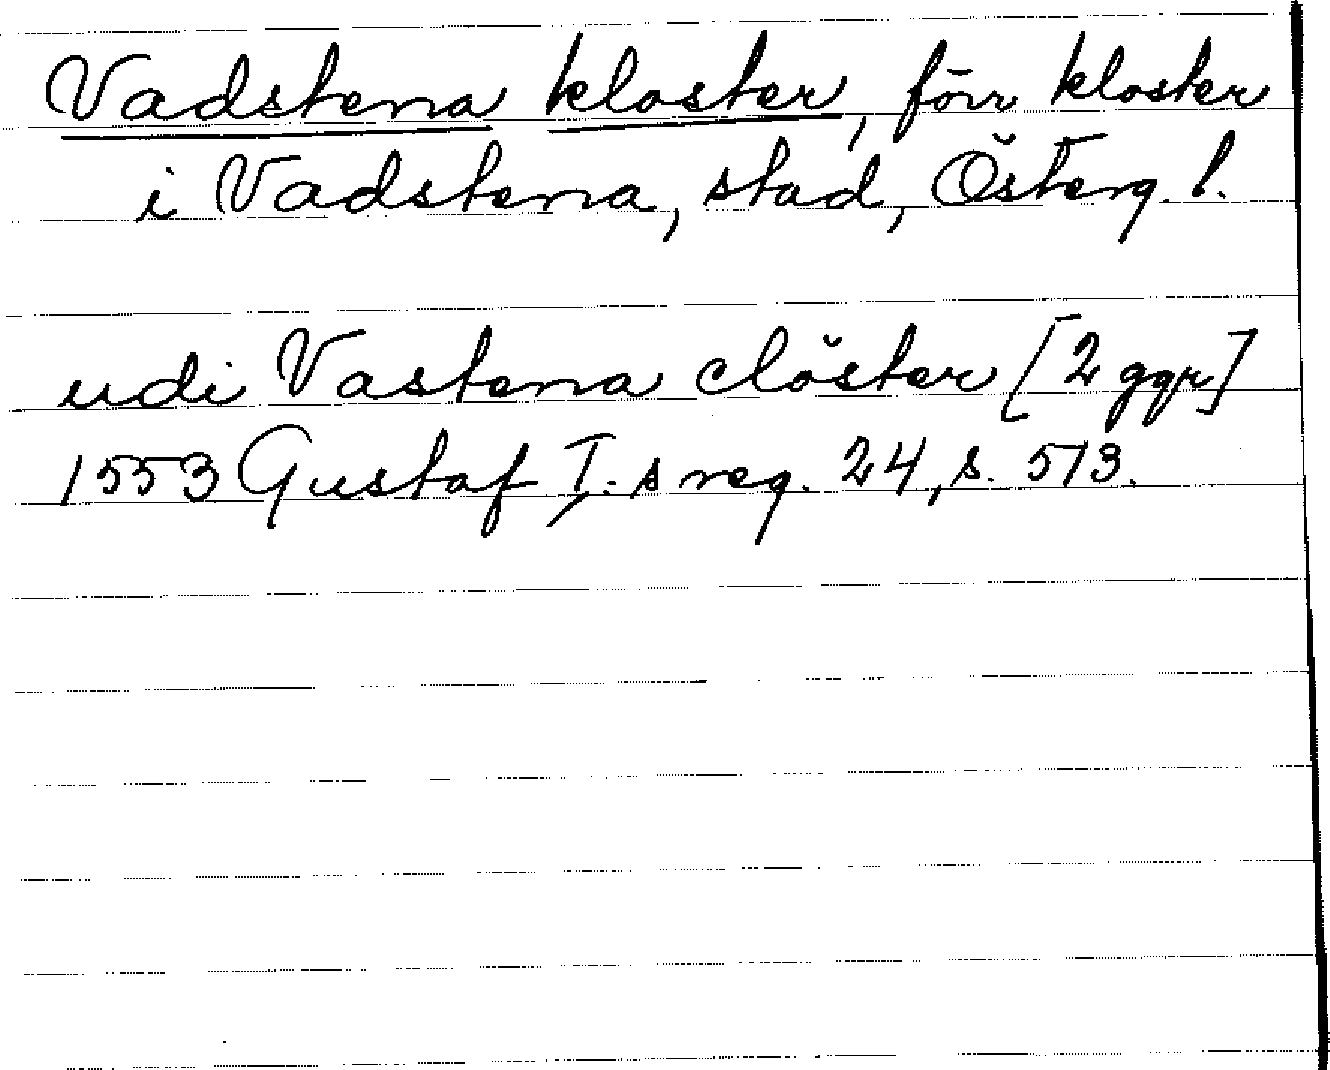 Vadstena kloster, förr kloster
i Vadstena, stad, Österg. l.
udi Vastena clöster [2 ggr]
1553 Gustaf I:s reg. 24, s. 513.